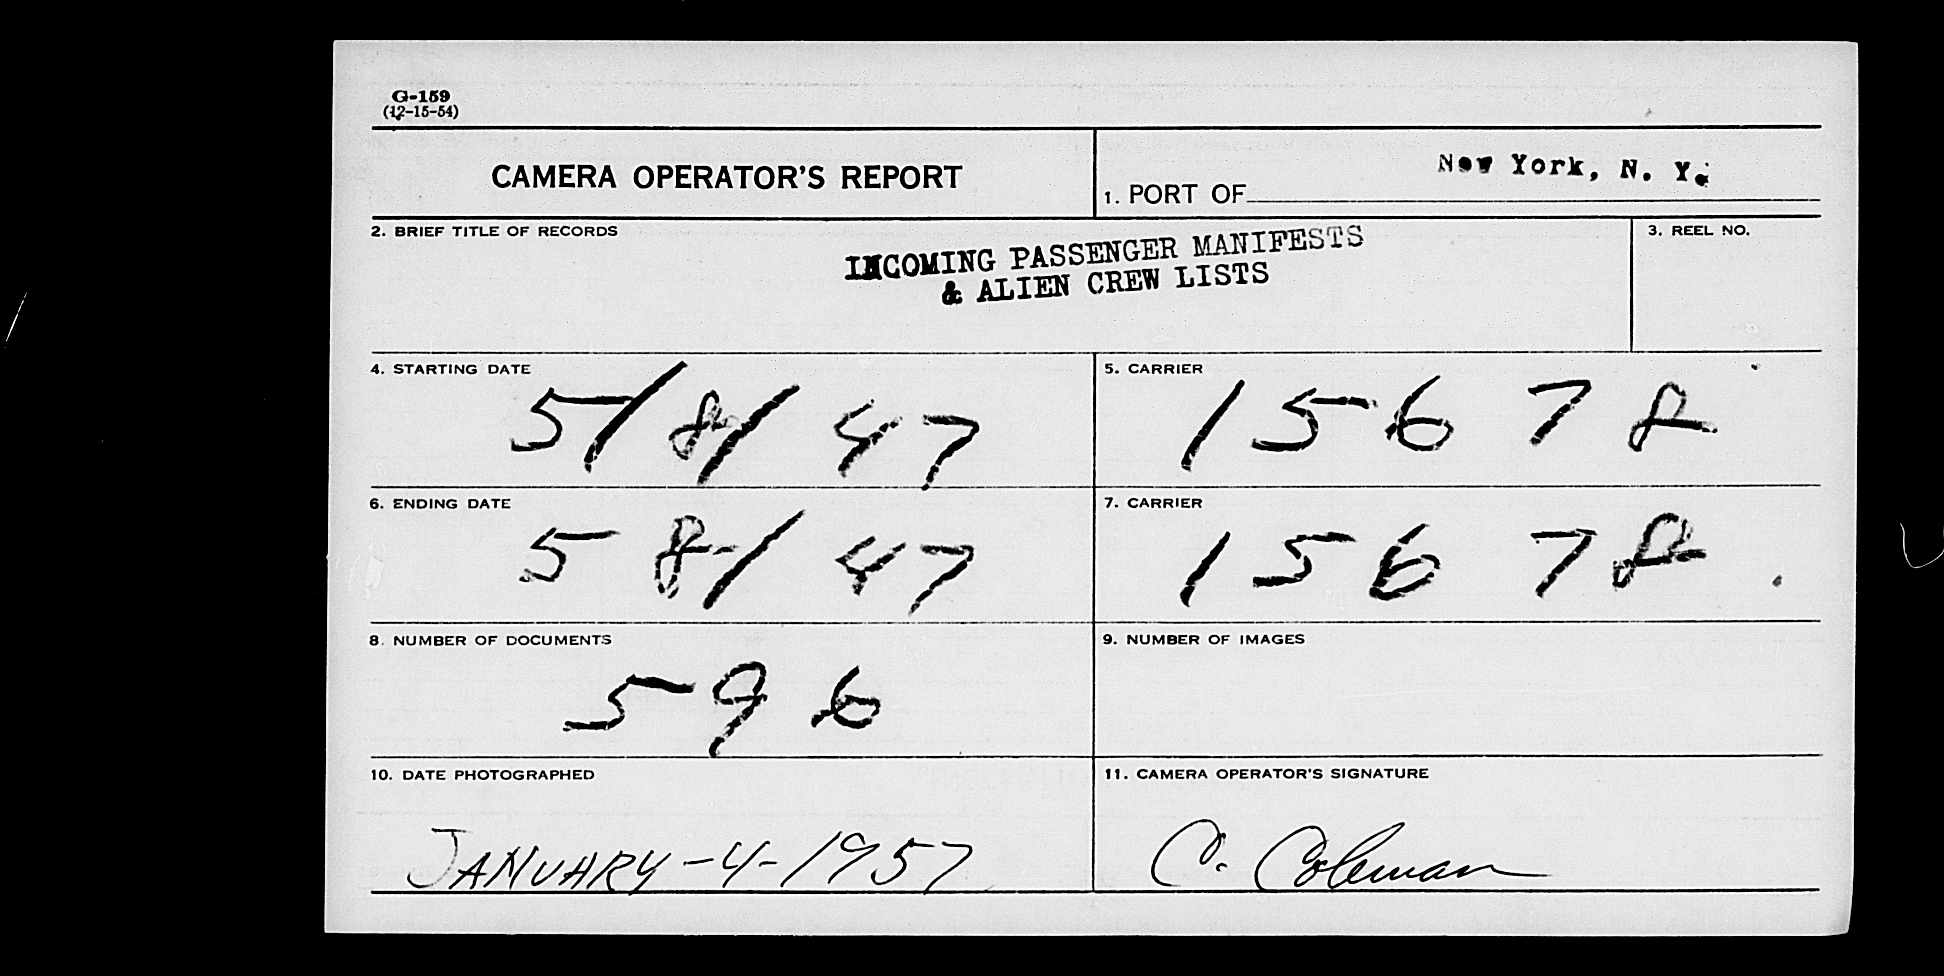 G-159
(12-15-54)
CAMERA OPERATOR'S REPORT
1. PORT OF New York, N. Y.
2. BRIEF TITLE OF RECORDS
INCOMING PASSENGER MANIFESTS
& ALIEN CREW LISTS
3. REEL NO.
4. STARTING DATE
5/8/47
5. CARRIER
15678
6. ENDING DATE
5 8/47
7. CARRIER
15678
8. NUMBER OF DOCUMENTS
596
9. NUMBER OF IMAGES
10. DATE PHOTOGRAPHED
JANUARY-4-1957
11. CAMERA OPERATOR'S SIGNATURE
C. Coleman